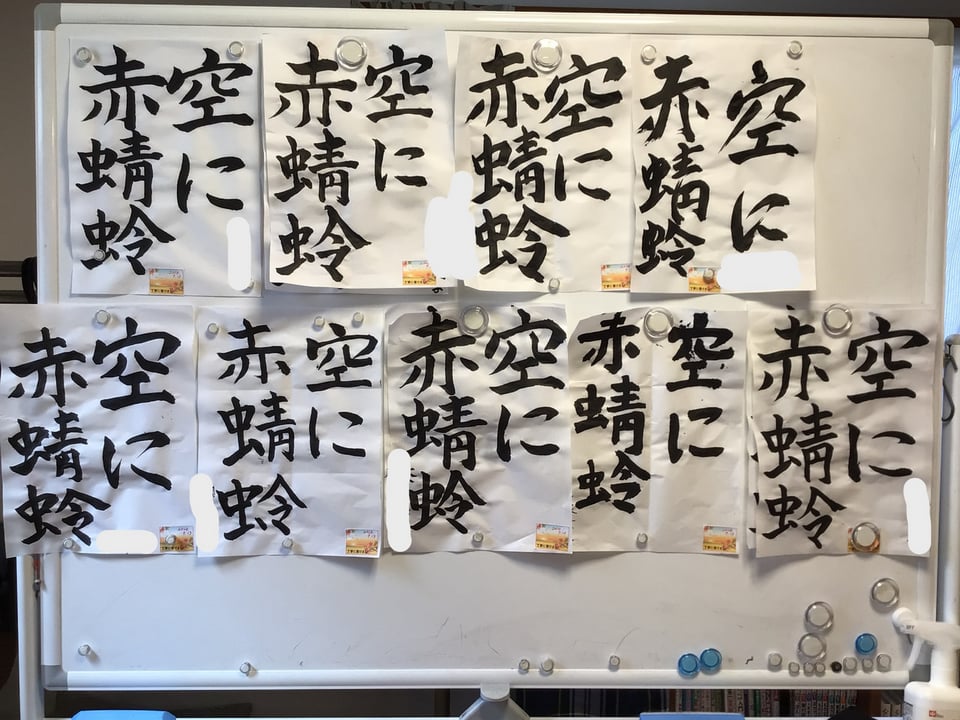 空に
赤蜻蛉
空に
赤蜻蛉
空に
赤蜻蛉
空に
赤蜻蛉
空に
赤蜻蛉
空に
赤蜻蛉
空に
赤蜻蛉
空に
赤蜻蛉
空に
赤蜻蛉